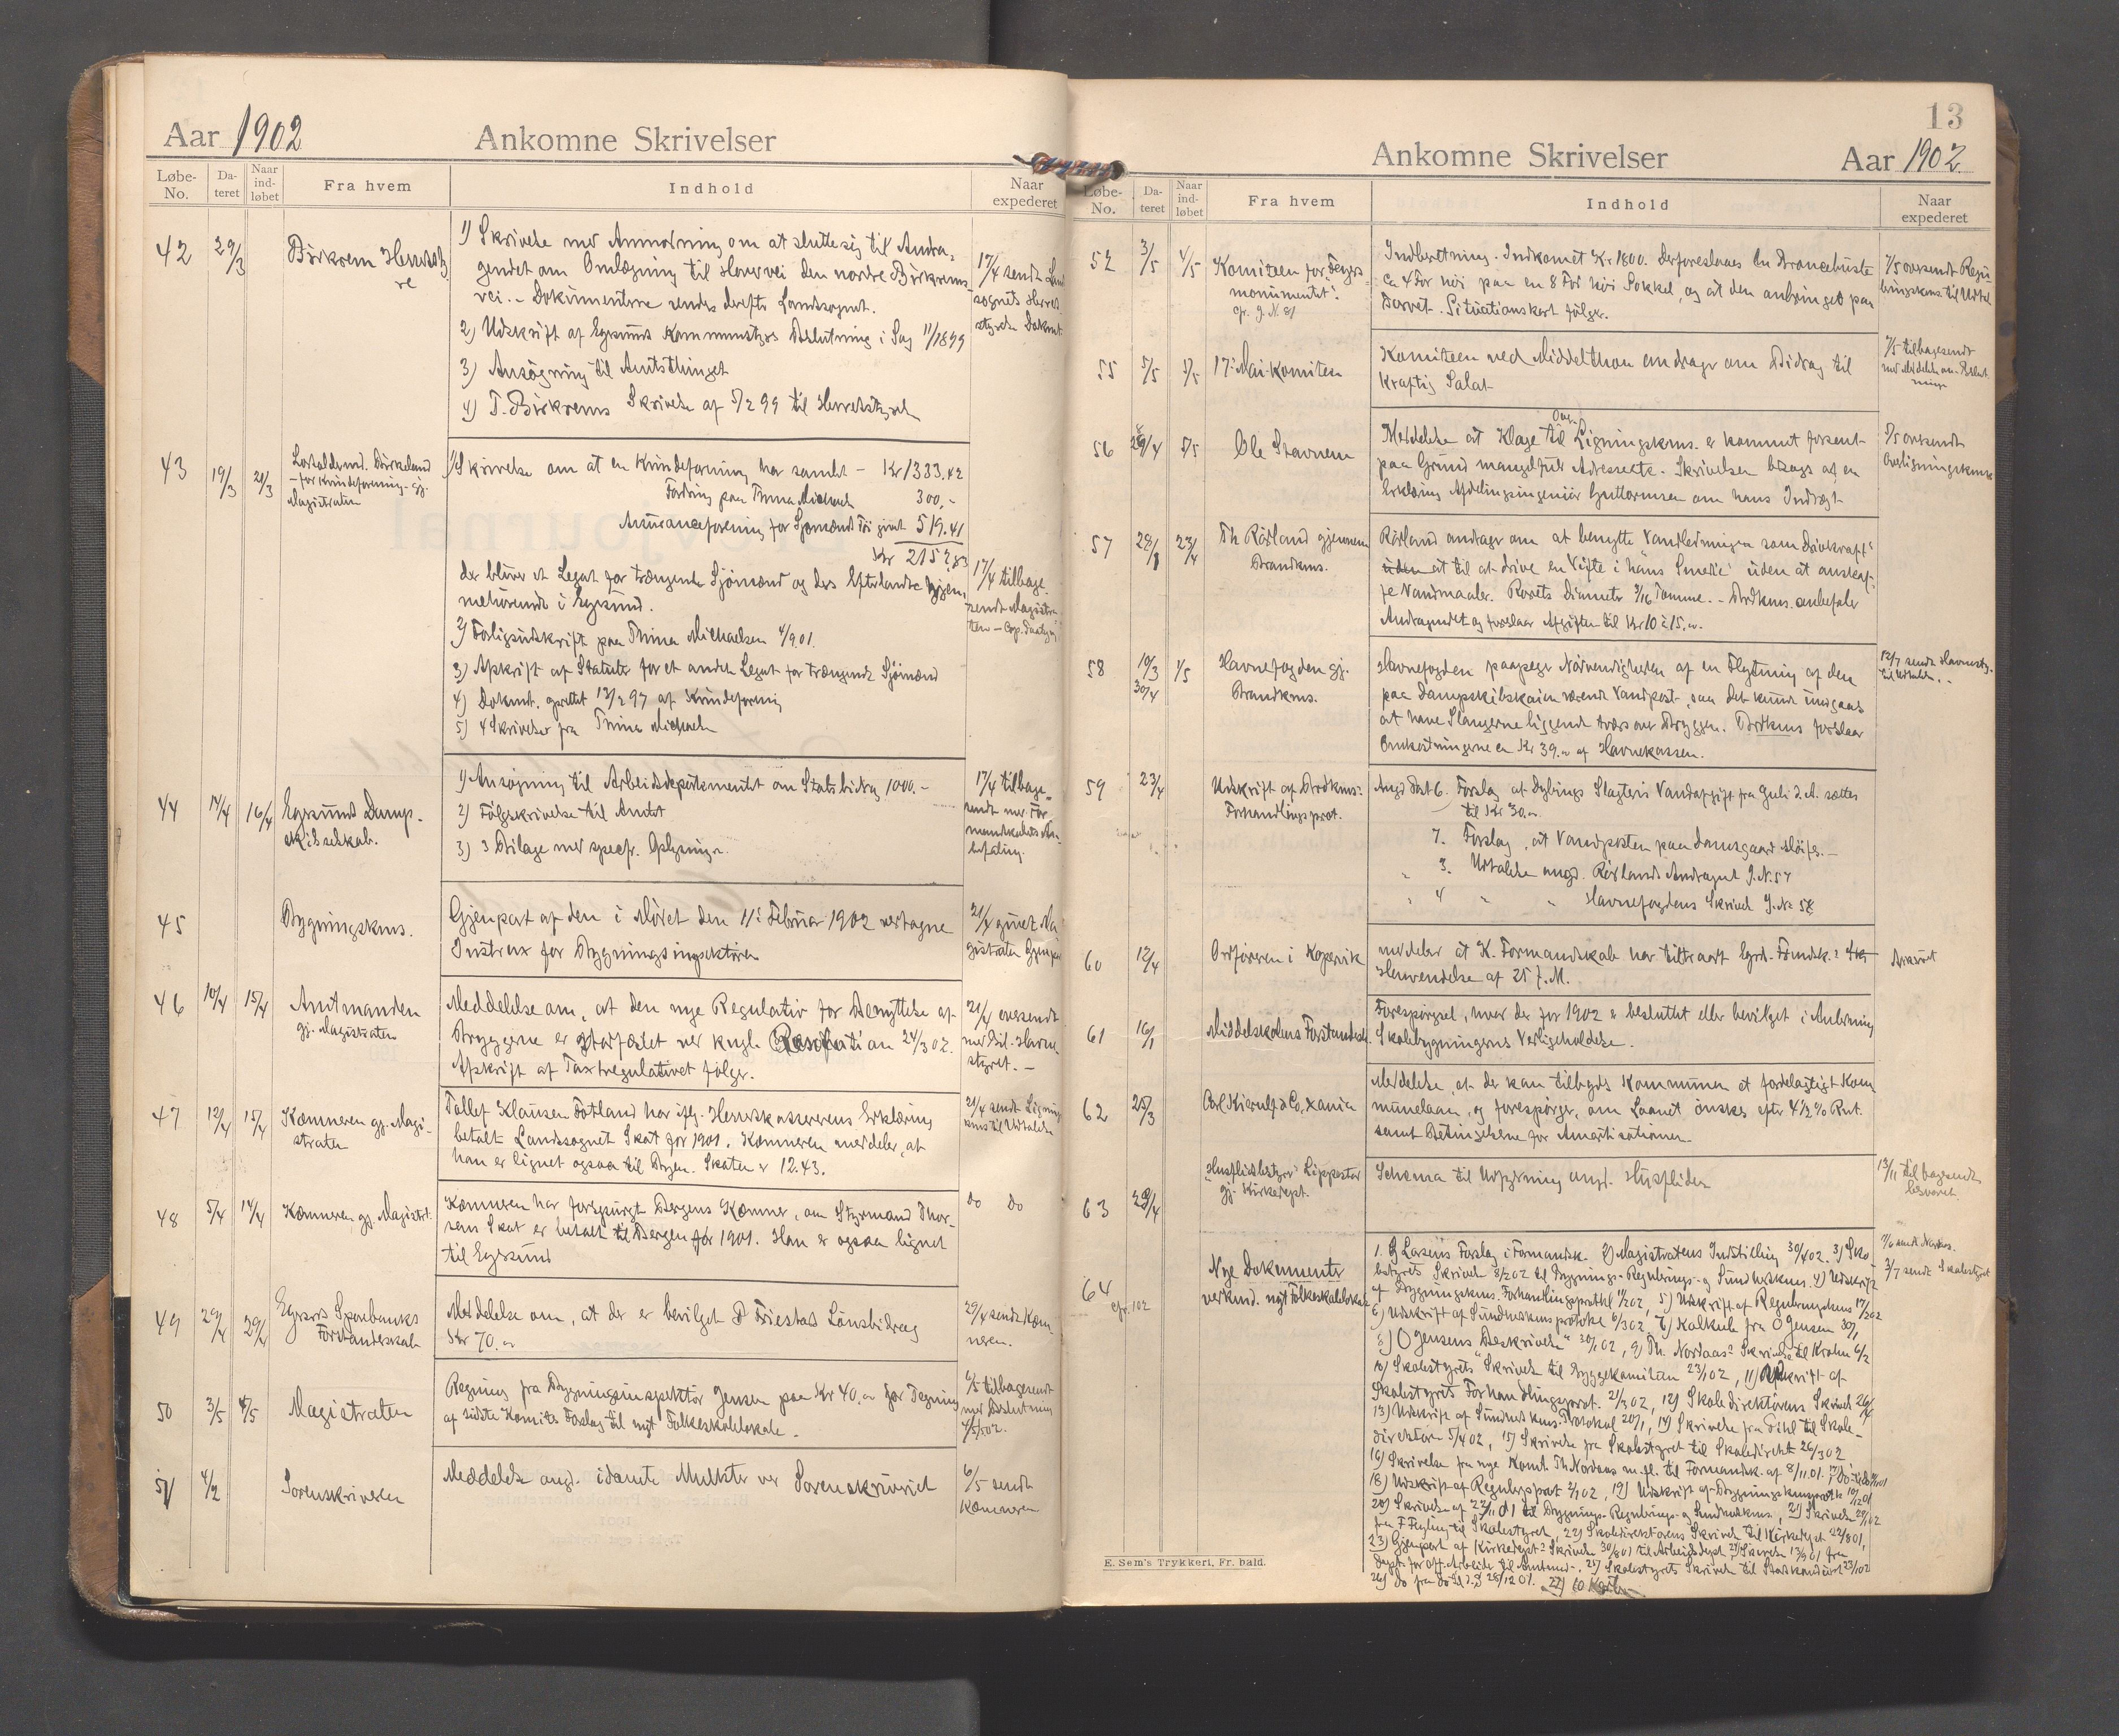 Aar 1902
Ankomne Skrivelser
Løbe-No.
Dateret
Naar indløbet
Fra hvem
Indhold
Naar expederet
42
29/3
Birkrem Herredsty-
re
1) Skrivelse med Anmodning om at slutte sig til Andra-
gendet om Omlægning til Hovedvei den nordre Birkrems-
vei. - Dokumenterne sendes derefter Landsognet.
2) Udskrift af Egersunds Kommunestyres Beslutning i Sag 11/1899
3) Ansøgning til Amtsthinget
4) T. Birkrems Skrivelse af 5/2 99 til Herredstyret
17/4 sendt Land
sognets Herred
styrelse Dokmt.
43
19/3
21/3
Birkeland
- for Kvindeforening - gj.
Magistraten
1) Skrivelse om at en Kvindeforening har samlet - Kr 1333.42
Fordring paa Thina Michaels 300,-
Assuranceforening for Sjømænd 519.41
Kr 2152,83
der bliver et Legat for trængende Sjømænd og deres Efterladte hjem-
mehørende i Egersund.
2) Forligsudskrift paa Thina Michaelsen 4/9 01.
3) Afskrift af Statuter for et andet Legat for trængende Sjømænd
4) Dokmt. oprettet 13/2 97 af Kvindeforening
5) 4 Skrivelser fra Thina Michaels
17/4 tilbage-
sendt Magistra-
ten -
44
14/4
16/4
Egersund Damp-
skibsselskab.
1) Ansøgning til Arbeidsdepartementet om Statsbidrag 1000.-
2) Følgeskrivelse til Amtet
3) 3 Bilage med specfr. Oplysninger.
17/4 tilbage-
sendt med For-
mandskabets An-
befaling.
45
Bygningskms.
Gjenpart af den i Mødet den 11te Februar 1902 vedtagne
Instrux for Bygningsinspektøren
21/4 givet Ma
gistraten Gjenpar
46
10/4
15/4
Amtmanden
gj. Magistraten
Meddelelse om, at den nye Regulativ for Benyttelse af
Bryggerne er stadfæstet ved kngl. Resolution 24/3 02.
Afskrift af Taxtregulativet følger.
21/4 oversendt
med Bil. Havne-
styret. -
47
12/4
15/4
Kæmneren gj. Magi-
straten
Tollef Klausen Fotland har iflg. Herredskassererens Erklæring
betalt Landsognet Skat for 1901. Kæmneren meddeler, at
han er lignet ogsaa til Byen. Skaten er 12.43.
21/4 sendt Lignings
kms til Udtalelse
48
5/4
14/4
Kæmneren gj. Magistrt.
Kæmneren har forespurgt Bergens Kæmner, om Styrmand Thor-
sens Skat er betalt til Bergen for 1901. Han er ogsaa lignet
til Egersund
do do
49
29/4
29/4
Egersunds Sparebanks
Forstanderskab
Meddelelse om, at der er bevilget P Friestad Lønsbidrag
Kr 70.00
29/4 sendt Kæm-
neren.
50
3/5
4/5
Magistraten
Regning fra Bygningsinspektør Jensen paa Kr 40.00 for Tegning
af sidste Komites Forslag til nyt Folkeskolelokale.
6/5 tilbagesendt
med Beslutning
4/5 02.
51
4/2
Sorenskriveren
Meddelelse angd. idømte Mulkter ved Sorenskriveriet
6/5 sendt
Kæmneren
13
Ankomne Skrivelser
Aar 1902
Løbe-No.
Dateret
Naar indløbet
Fra hvem
Indhold
Naar expederet
52
3/5
4/5
Komiteen for Feyers
monumentet.
cfr. J.N. 81
Indberetning. Indkomet Kr 1800. Der foreslaaes en Broncebuste
ca 4 Fod høi paa en 8 Fod høi Sokkel, og at den anbringes paa
Torvet. Situationskart følger.
7/5 oversendt Regu
leringskms. til Udtal
55
5/5
5/5
17de Mai-Komiteen
Komiteen ved Middelthon andrager om Bidrag til
kraftig Salut
7/5 tilbagesendt
med Meddelelse om Beslut-
ningen
56
28/4
5/5
Ole Stavnem
Meddelelse at Klage til Over Ligningskms. er kommet forsent
paa Grund mangelfuld Adressecte. Skrivelsen bilagt af en
Erklæring Afdelingsingeniør Guttormsen om hans Indtægt
5/5 oversendt
Overligningskms
57
23/4
Th Røsland gjennem
Brandkms.
Røsland andrager om at benytte Vandledningen som Drivkraft
uden at til at drive en Vifte i hans Smedie uden at anskaf-
fe Vandmaaler. Rørets Diameter 3/16 Tomme. - Brdkms. anbefaler
Andragendet og foreslaar Afgiften til Kr 10 à 15,00.
58
19/3
30/4
1/5
Havnefogden gj.
Brandkms.
Havnefogden paapeger Nødvendigheden af en Flytning af den
paa Dampskibskaien værende Vandpost, saa det kunde undgaaes
at have Slangerne liggende tværs over Bryggen. Brdkms foreslaar
Omkostningerne ca Kr 39.00 af Havnekassen.
12/7 sendt Havnesty.
til Udtalelse. -
59
23/4
Udskrift af Brdkms:
Forhandlingsprot.
Angd Sat 6. Forslag at Dybings Slagteris Vandafgift fra Juli d. A. sættes
til Kr 30.00
7. Forslag, at Vandposten paa Damsgaard sløifes. -
" 3. Udtalelse angd. Røslands Andragende J.N. 57
" 4 " " Havnefogdens Skrivelse J.No 58
60
12/4
Ordføreren i Kopervik
meddeler at K. Formandskab har tiltraadt Egrd. Fmdsk.s
Henvendelse af 25 f. M.
61
16/1
Middelskolens Forstandersk.
Forespørgsel, hvad der for 1902 er besluttet eller bevilget i Anledning
Skolebygningens Vedligeholdelse.
62
25/3
Carl Kierulf & Co, Xania
Meddelelse, at der kan tilbydes Kommunen et fordelagtigt Kom
munelaan, og forespørger, om Laanet ønskes efter 4½ % Rnt.
samt Betingelserne for Amortisationen.
63
29/4
Husflidsbestyrer Lippestad
gj. Kirkedept.
Schema til Udfyldning angd. Husfliden
13/11 tilbagesendt
besvaret.
64
cfr. 102
Nye Dokumenter
vedkmd. nyt Folkeskolelokale
1. O Larsens Forslag i Formandsk. 2) Magistratens Indstilling 30/4 02. 3) Sko-
lestyrets Skrivelse 8/2 02 til Bygnings- Regulerings- og Sundhedskms. 4) Udskrift
af Bygningskms. Forhandlingsprotkl 11/2 02, 5) Udskrift af Reguleringskms 17/2 02
6) Udskrift af Sundhedskms protokol 6/3 02, 7) Kalkule fra O Jensen 30/1
8) O Jensens Beskrivelse 30/1 02, 9) Th. Nordaas' Skrivelse til Krohn 6/2
10) Skolestyrets Skrivelse til Byggekomiteen 23/1 02, 11) Udskrift af
Skolestyrets Forhandlingsprot. 21/3 02, 12) Skoledirektørens Skrivelse 26/4
13) Udskrift af Sundhedskms. Protokol 20/1, 14) Skrivelse fra Pihl til Skole-
direktøren 5/4 02, 15) Skrivelse fra Skolestyret til Skoledirektør 26/3 02
16) Skrivelse fra nye Komt. Th Nordaas m. fl. til Formandsk. af 8/11.01.
18) Udskrift af Regulgsprot 2/1 02, 19) Udskrift af Bygningskmsprotk
20) Skrivelse af 22/11 01 til Bygnings- Regulerings- og Sundhedskms., 21) Skrivelse 29/1 02
fra F Feyling til Skolestyret, 22) Skoledirektørens Skrivelse til Kirkedept 22/8 01,
23) Gjenpart af Kirkedept.s Skrivelse 30/8 01 til Arbeidsdept, 24) Skrivelse 13/9 01 fra
Dept. for off. Arbeide til Amtmd., 25) Skolestyrets Skrivelse til Stadskonduct 23/1 02
26) do fra do til 28/12 01.
7/6 sendt Nordaas.
3/7 sendt Skolestyret
E. Sem's Trykkeri, Fr. hald.